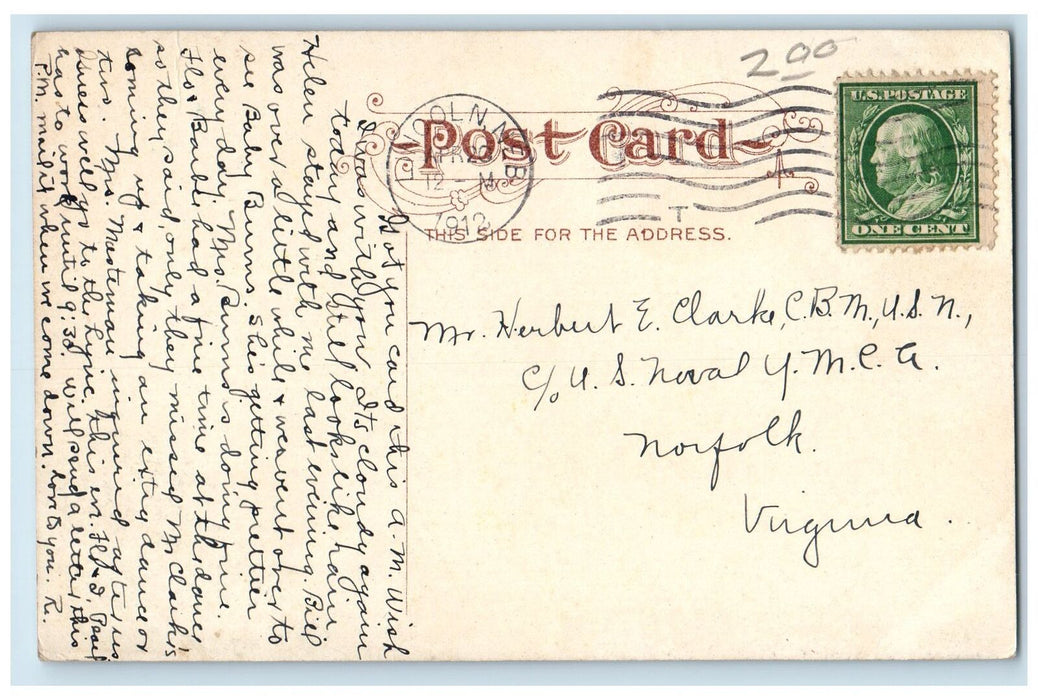 2.00
U.S. POSTAGE
ONE CENT
Post Card
COLN NEB
APR 20
12 M
1912
T
THIS SIDE FOR THE ADDRESS.
Mr. Herbert E. Clarke, C.B.M., U.S.N.,
c/o U. S. Naval Y. M. C. A.
Norfolk.
Virginia.
Got you card this a.M. Wish
I was with you. Its cloudy again
today and still looks like rain
Helen stayed with me last evening. Bill
was over a little while & we went over to
see Baby Burns. She's getting prettier
every day. Mrs. Burns is doing fine.
Flo & Babe had a fine time at the dance
so they said, only they missed Mr Clarkis
coming up & taking an extra dance or
two. Mrs. Masteman inquired after us
Dunes well, go to the Lyric this ev. Flo & I. Pearl
has to work until 9:30. will send a letter this
P.M. mail it when we come down. Love to you. R.